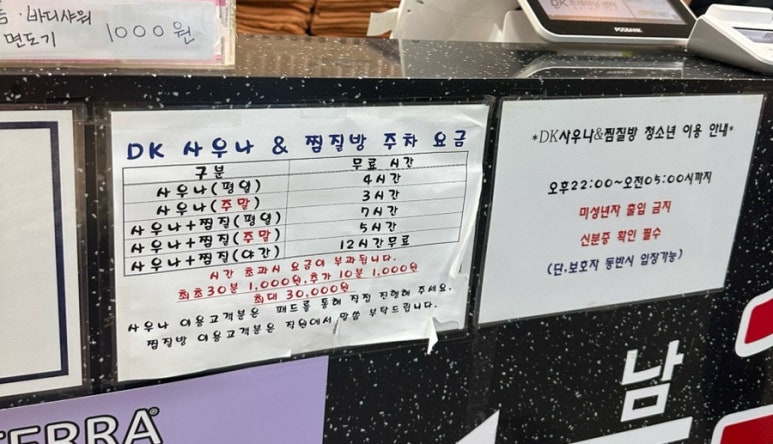 · 바디샤워
면도기 1000원
POSBANK
DK 사우나 & 찜질방 주차 요금
구분 무료 시간
사우나(평일) 4시간
사우나(주말) 3시간
사우나+찜질(평일) 7시간
사우나+찜질(주말) 5시간
사우나+찜질(야간) 12시간무료
시간 초과시 요금이 부과됩니다.
최초30분 1,000원,추가 10분 1,000원
최대 30,000원
사우나 이용고객분은 패드를 통해 직접 진행해 주세요.
찜질방 이용고객분은 직원에게 말씀 부탁드립니다.
*DK사우나&찜질방 청소년 이용 안내*
오후22:00~오전05:00시까지
미성년자 출입 금지
신분증 확인 필수
(단,보호자 동반시 입장가능)
남
TERRA®